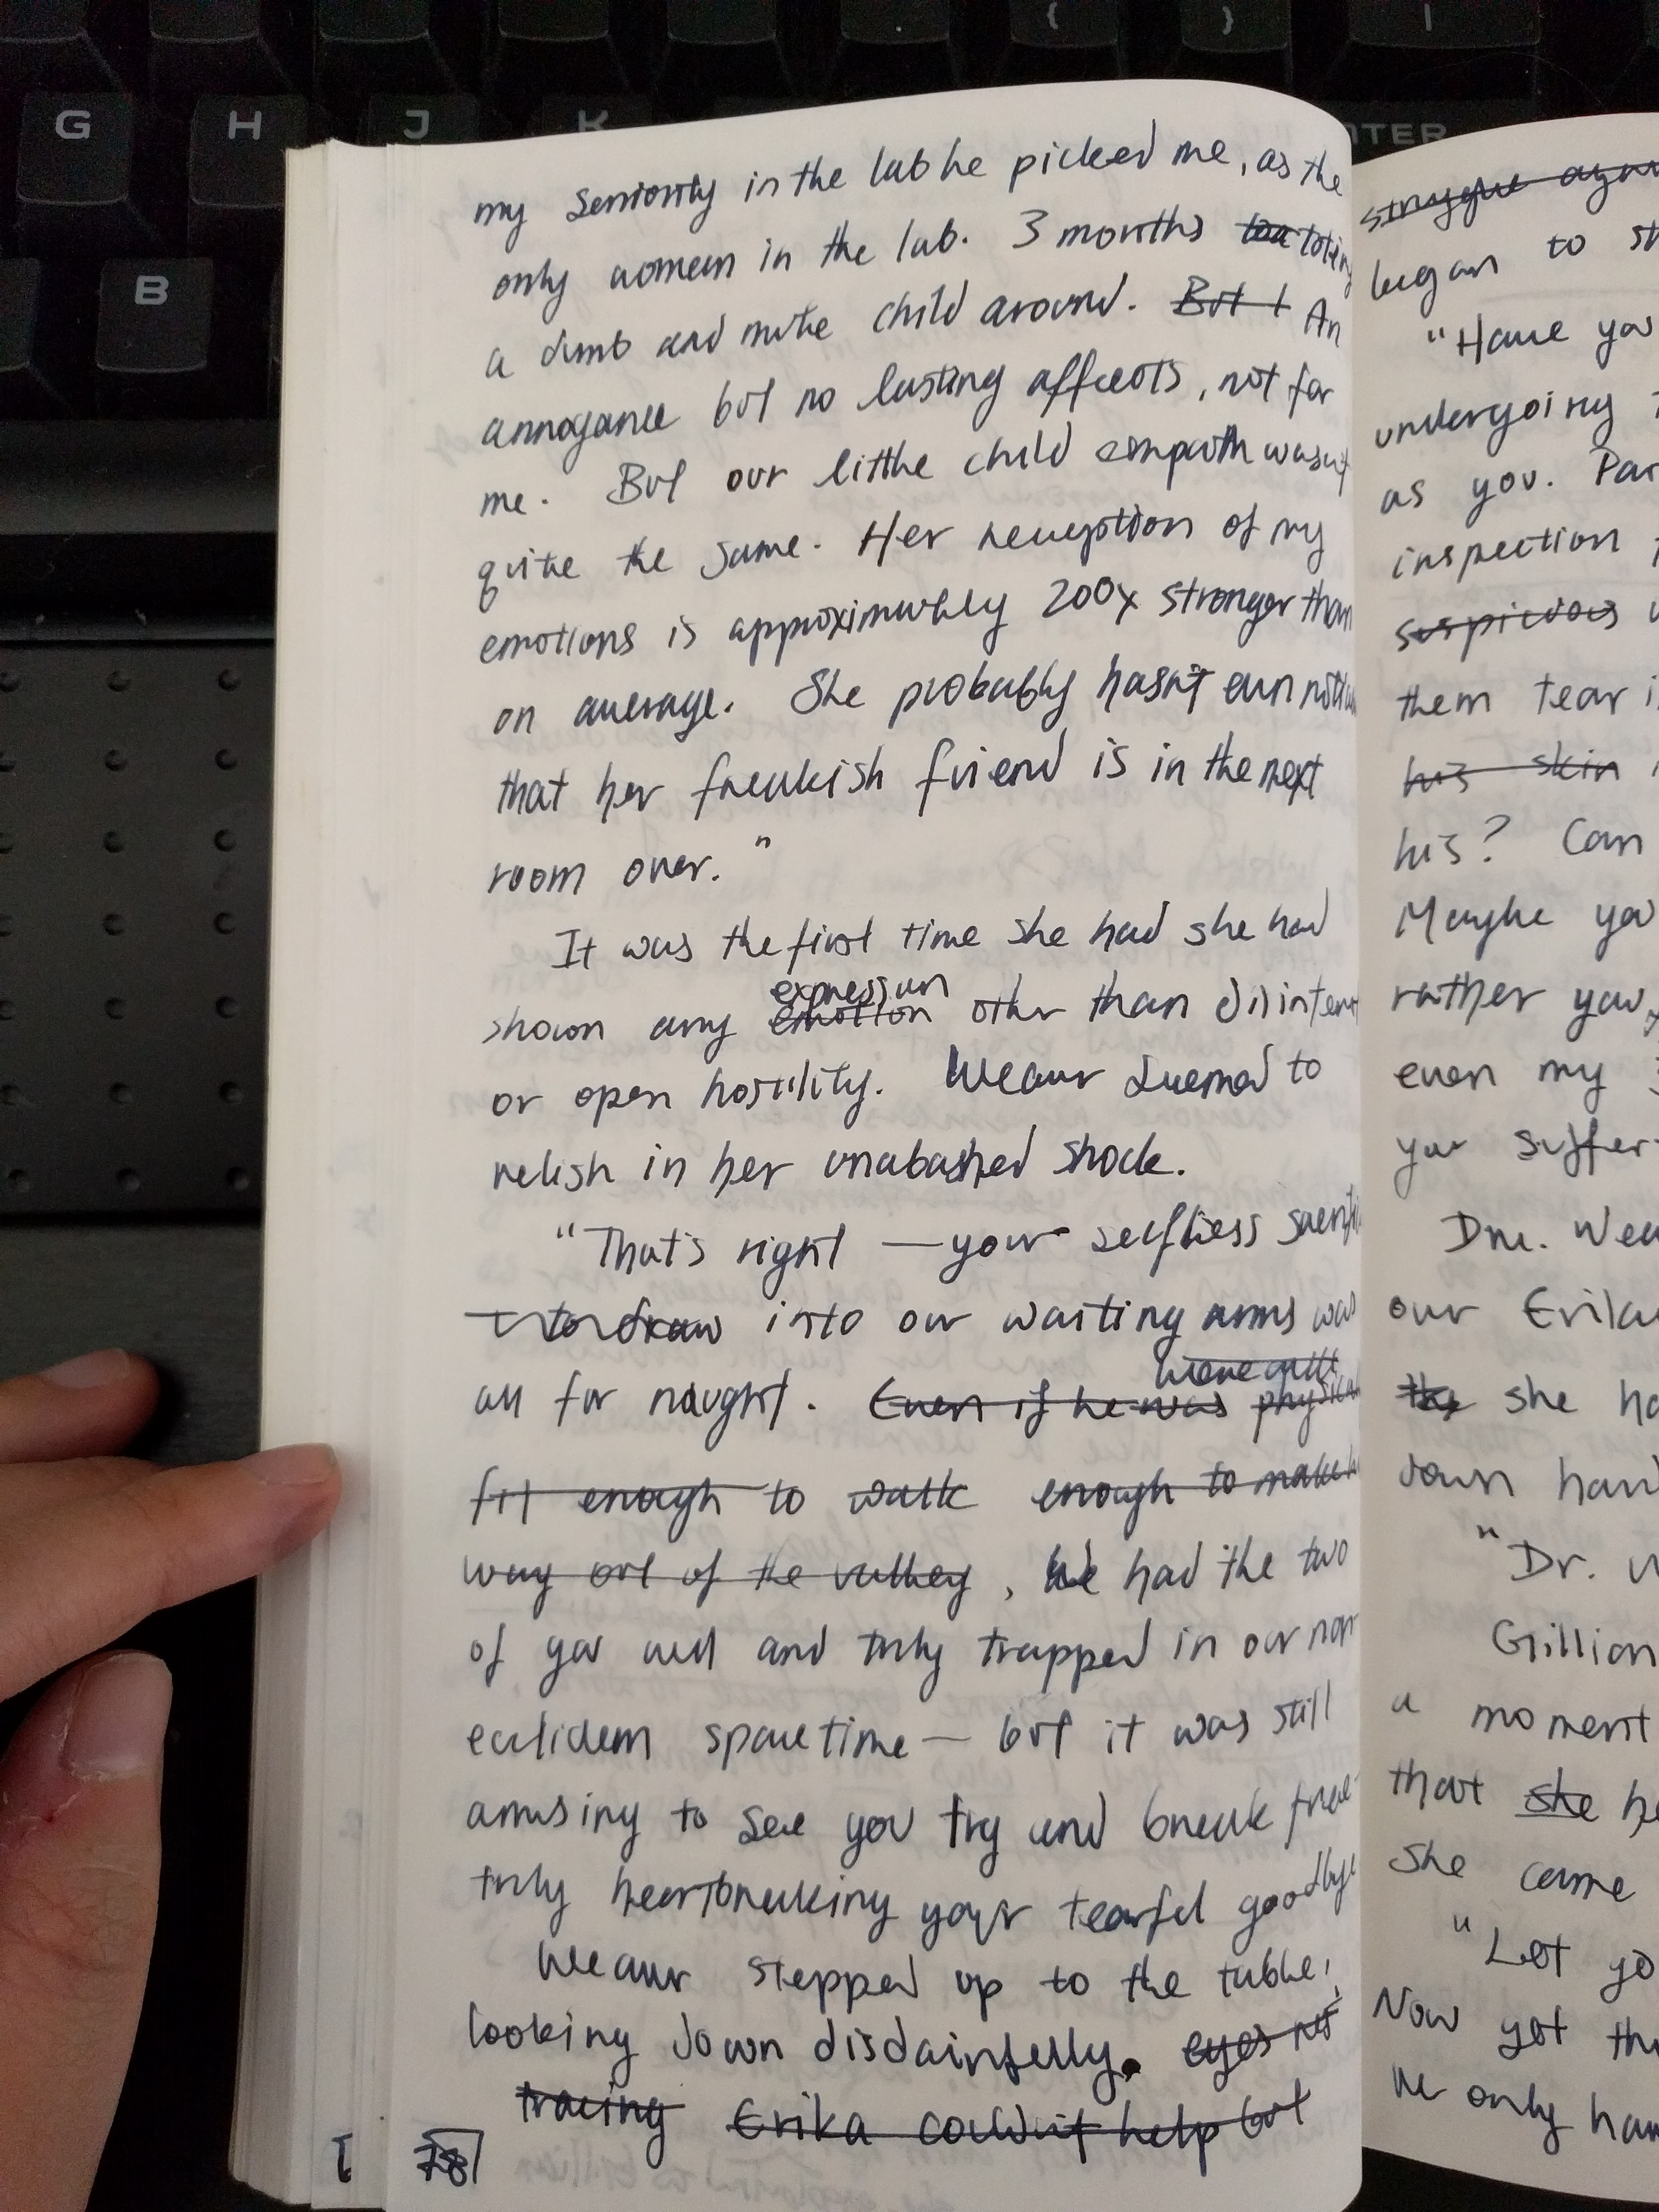 { } |
G H J K ENTER
B
my seniority in the lab he picked me, as the
only women in the lab. 3 months too toting
a dumb and mute child around. But I An
annoyance but no lasting affects, not for
me. But our little child empath wasn't
quite the same. Her reception of my
emotions is approximately 200x stronger than
on average. She probably hasn't even
that her freakish friend is in the next
room over."
It was the first time she had she had
expression
shown any emotion other than disinter
or open hostility. Weaur seemed to
relish in her unabashed shock.
"That's right — your selfless
to draw into our waiting arms was
all for naught. Even if he was physical
were
fit enough to walk enough to make
way out of the valley, We had the two
of you well and truly trapped in our non
euclidean spacetime — but it was still
amusing to see you try and break free
truly heartbreaking your tearful goodbye
Weaur stepped up to the table,
looking down disdainfully. eyes not
tracing Erika couldn't help but
78
began to st
"Have you
undergoing
as you. Par
inspection
suspicious
them tear i
his skin
his? Can
Maybe you
rather you
even my
your suffer
Dr. Wea
our Erika
the she ha
down hand
"Dr. W
Gillian
a moment
that she he
she came
"Let yo
Now get th
We only hav